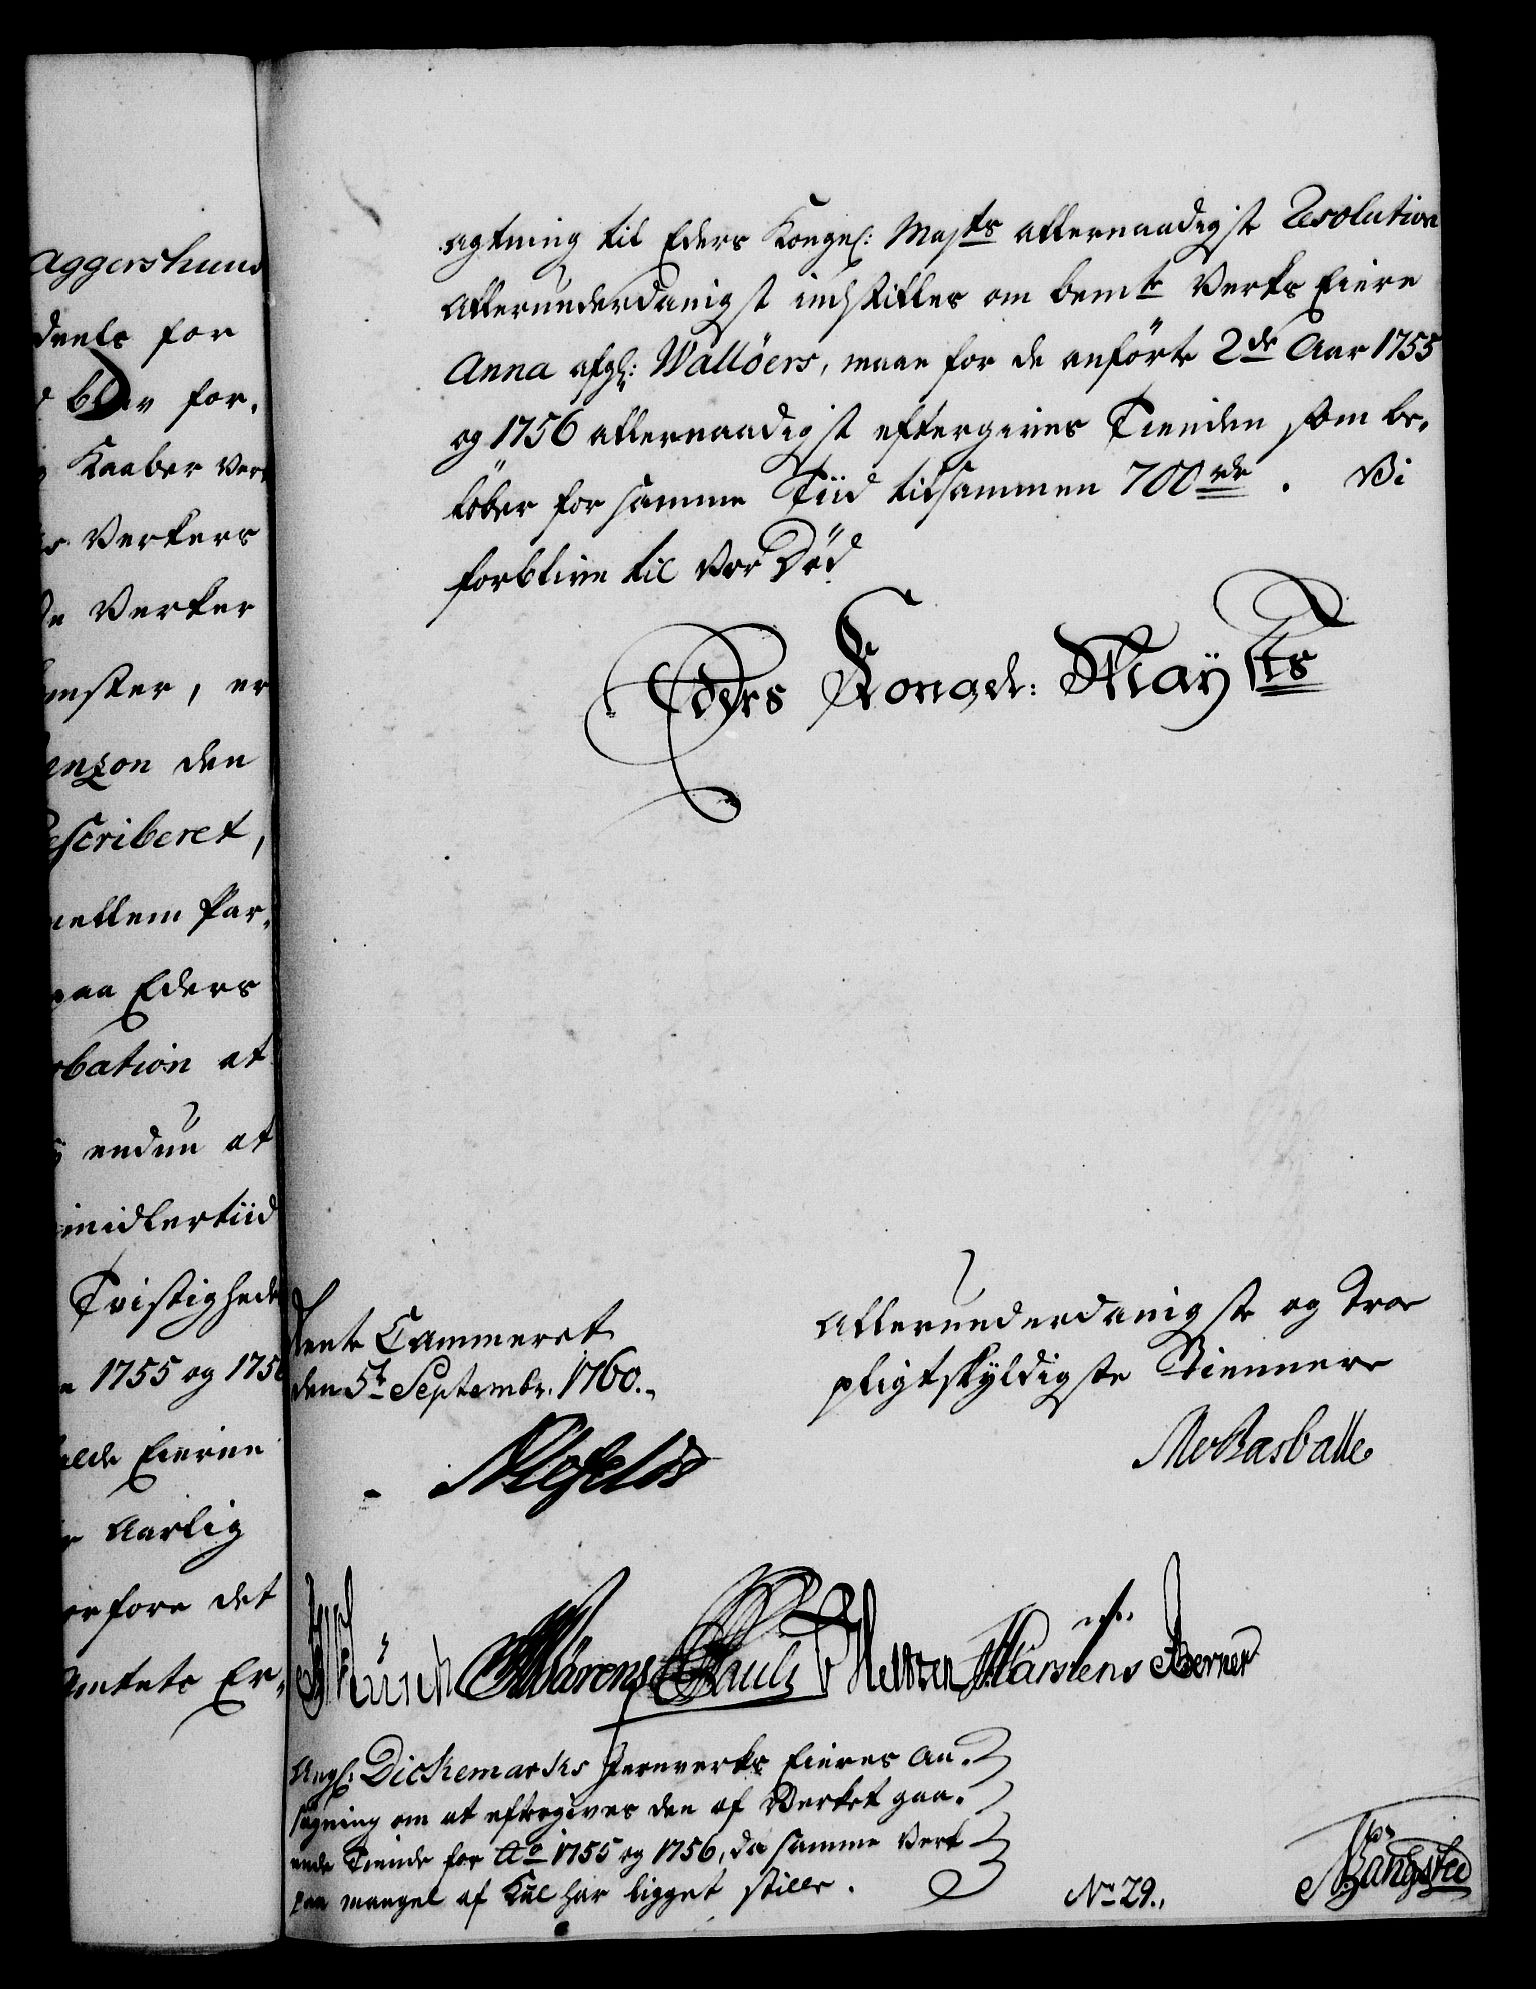 Aggershuus
deels for
blev for-
Kaaber Verk
Verkers
de Verker
mster, er
enzon den
escriberet,
mellem Par-
paa Eders
bation at
endnu at
imidlertiid
Tvistighed
1755 og 1756
Eierne
Aarlig
orfore det
Amtets Er-
agtning til Eders Kongel: Majts allernaadigste Resolution
Allerunderdanigst indstilles om bemte Verks Eiere
Anna afgl: Wallöers, maae for de anførte 2de Aar 1755
og 1756 allernaadigst eftergives Tienden som be-
löber for samme Tiid tilsammen 700 rdr. Vi
forblive til vor Död
Eders Kongel: Mayts
Rente Cammeret
den 5te Septembr. 1760.
Allerunderdanigste og Troe
pligtskyldigste Tiennere
Ahlefeldt
Rasballe
Münch Mörens Pauli Holtzen Karstens Berner
Angl: Dichemarks Jernverks Eieres An-
søgning om at eftergives den af Verket gaa-
ende Tiende for Ao 1755 og 1756, da samme Verk
paa mangel af Kul har ligget stille.
No 29.
Bangstee